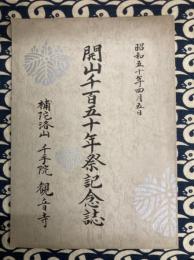 昭和五十年四月五日
開山千百五十年祭記念誌
補陀洛山 千手院 觀音寺